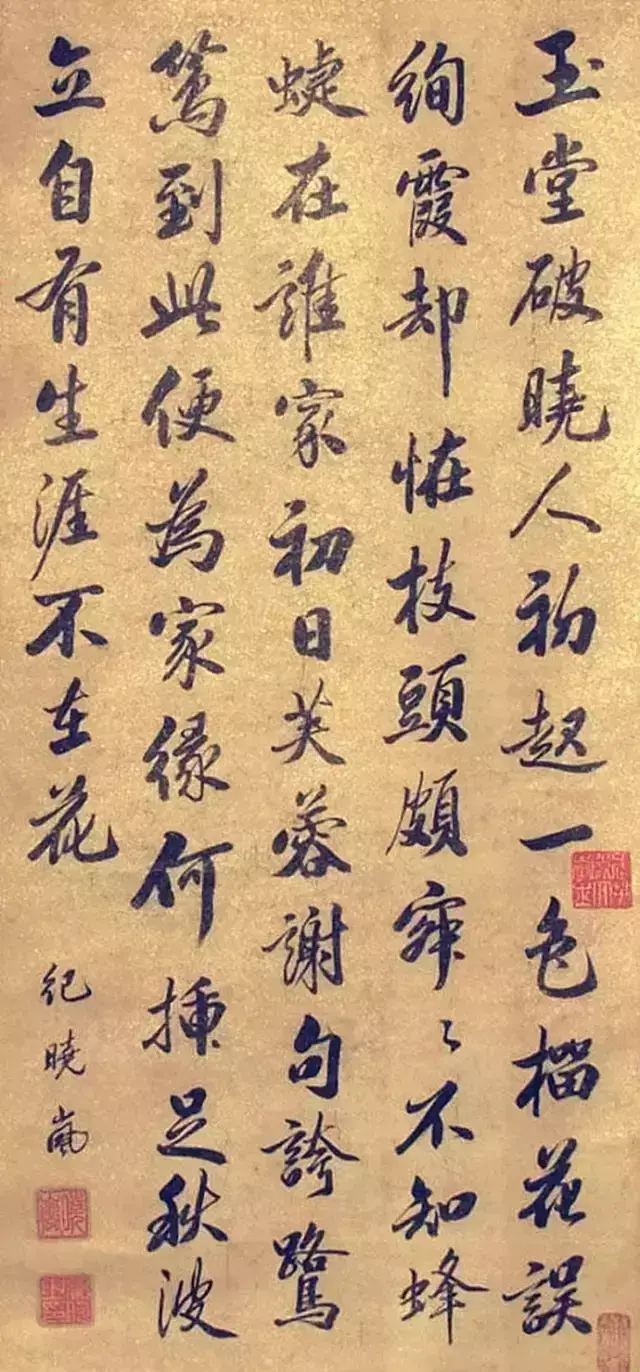 玉堂破曉人初起一色榴花誤
絢霞却恠枝頭頗寂〻不知蜂
蜨在誰家初日芙蓉謝句誇鷺
鷥到此便為家緣何揷足秋波
立自有生涯不在花
紀曉嵐